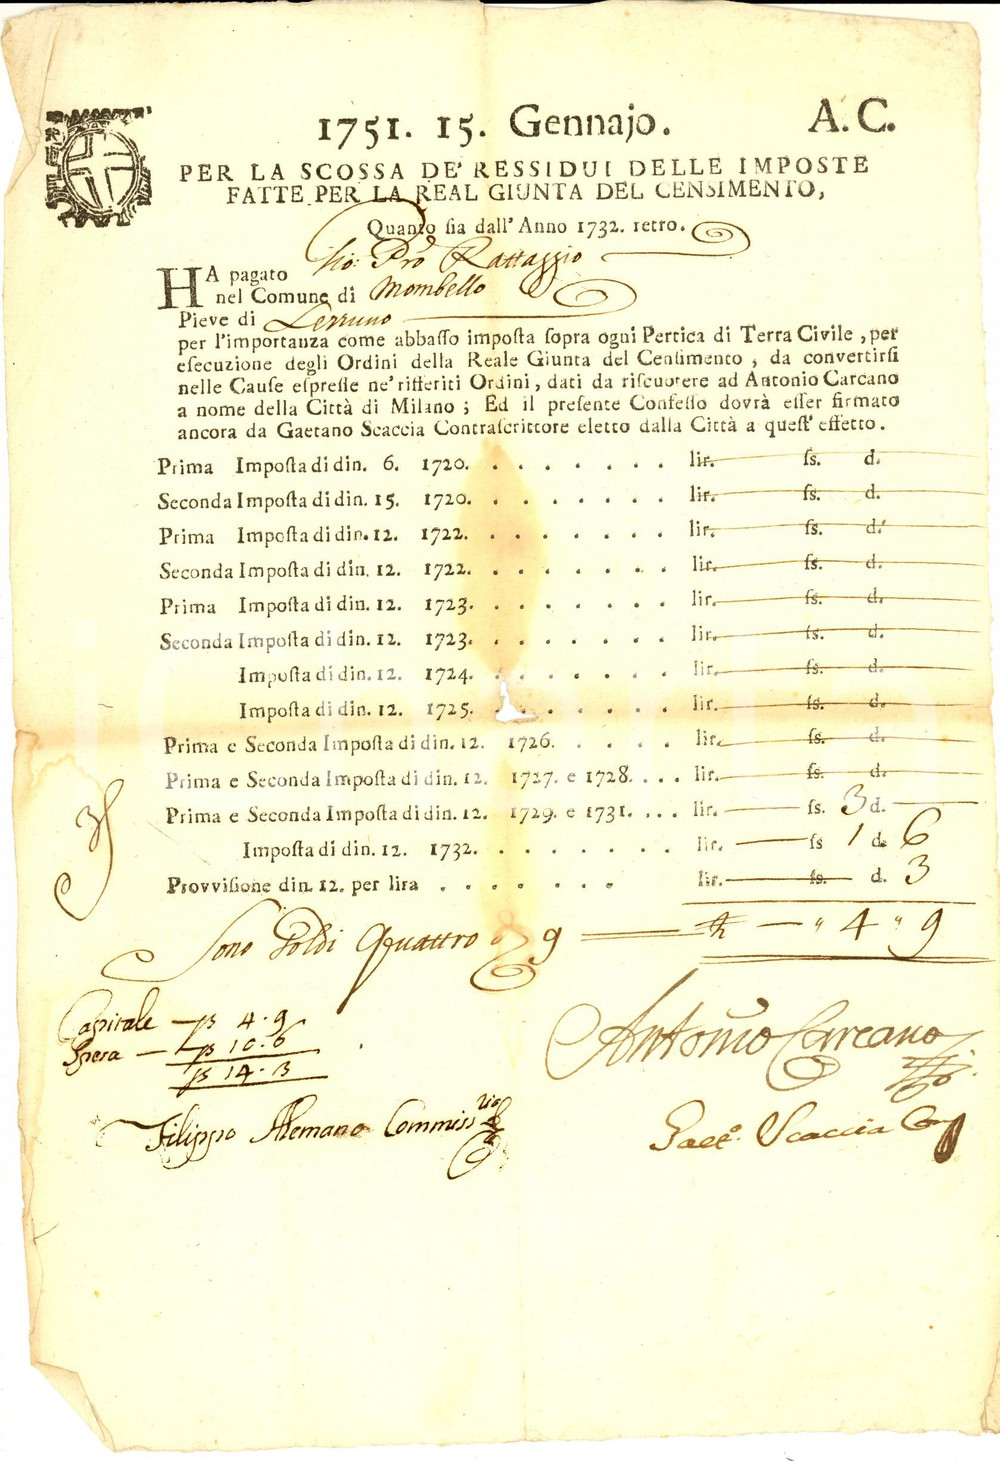 1751. 15. Gennajo. A. C.
PER LA SCOSSA DE' RESSIDUI DELLE IMPOSTE
FATTE PER LA REAL GIUNTA DEL CENSIMENTO,
Quanto sia dall' Anno 1732. retro.
HA pagato Gio: Pro Rattaggio
nel Comune di Mombello
Pieve di
per l'importanza come abbasso imposta sopra ogni Pertica di Terra Civile, per
esecuzione degli Ordini della Reale Giunta del Censimento, da convertirsi
nelle Cause espresse ne' rifferiti Ordini, dati da riscuotere ad Antonio Carcano
a nome della Città di Milano; Ed il presente Confesso dovrà esser firmato
ancora da Gaetano Scaccia Contrascrittore eletto dalla Città a quest' effetto.
Prima Imposta di din. 6. 1720. . . . . . . . lir. ss. d.
Seconda Imposta di din. 15. 1720. . . . . . . . lir. ss. d.
Prima Imposta di din. 12. 1722. . . . . . . . lir. ss. d.
Seconda Imposta di din. 12. 1722. . . . . . . . lir. ss. d.
Prima Imposta di din. 12. 1723. . . . . . . . lir. ss. d.
Seconda Imposta di din. 12. 1723. . . . . . . . lir. ss. d.
Imposta di din. 12. 1724. . . . . . . . lir. ss. d.
Imposta di din. 12. 1725. . . . . . . . lir. ss. d.
Prima e Seconda Imposta di din. 12. 1726. . . . . . lir. ss. d.
Prima e Seconda Imposta di din. 12. 1727. e 1728. . . . lir. ss. d.
Prima e Seconda Imposta di din. 12. 1729. e 1731. . . . lir. — ss. 3 d. —
Imposta di din. 12. 1732. . . . . . . . lir. — ss 1 d. 6
Provvisione din. 12. per lira . . . . . . . lir. — ss. — d. 3
Sono Soldi Quattro d 9 — " 4 " 9
Capitale — 4 . 9
Spesa — 10 . 6
14 . 3
Antonio Carcano
Filippo Alemano Commiss
Gaet. Scaccia